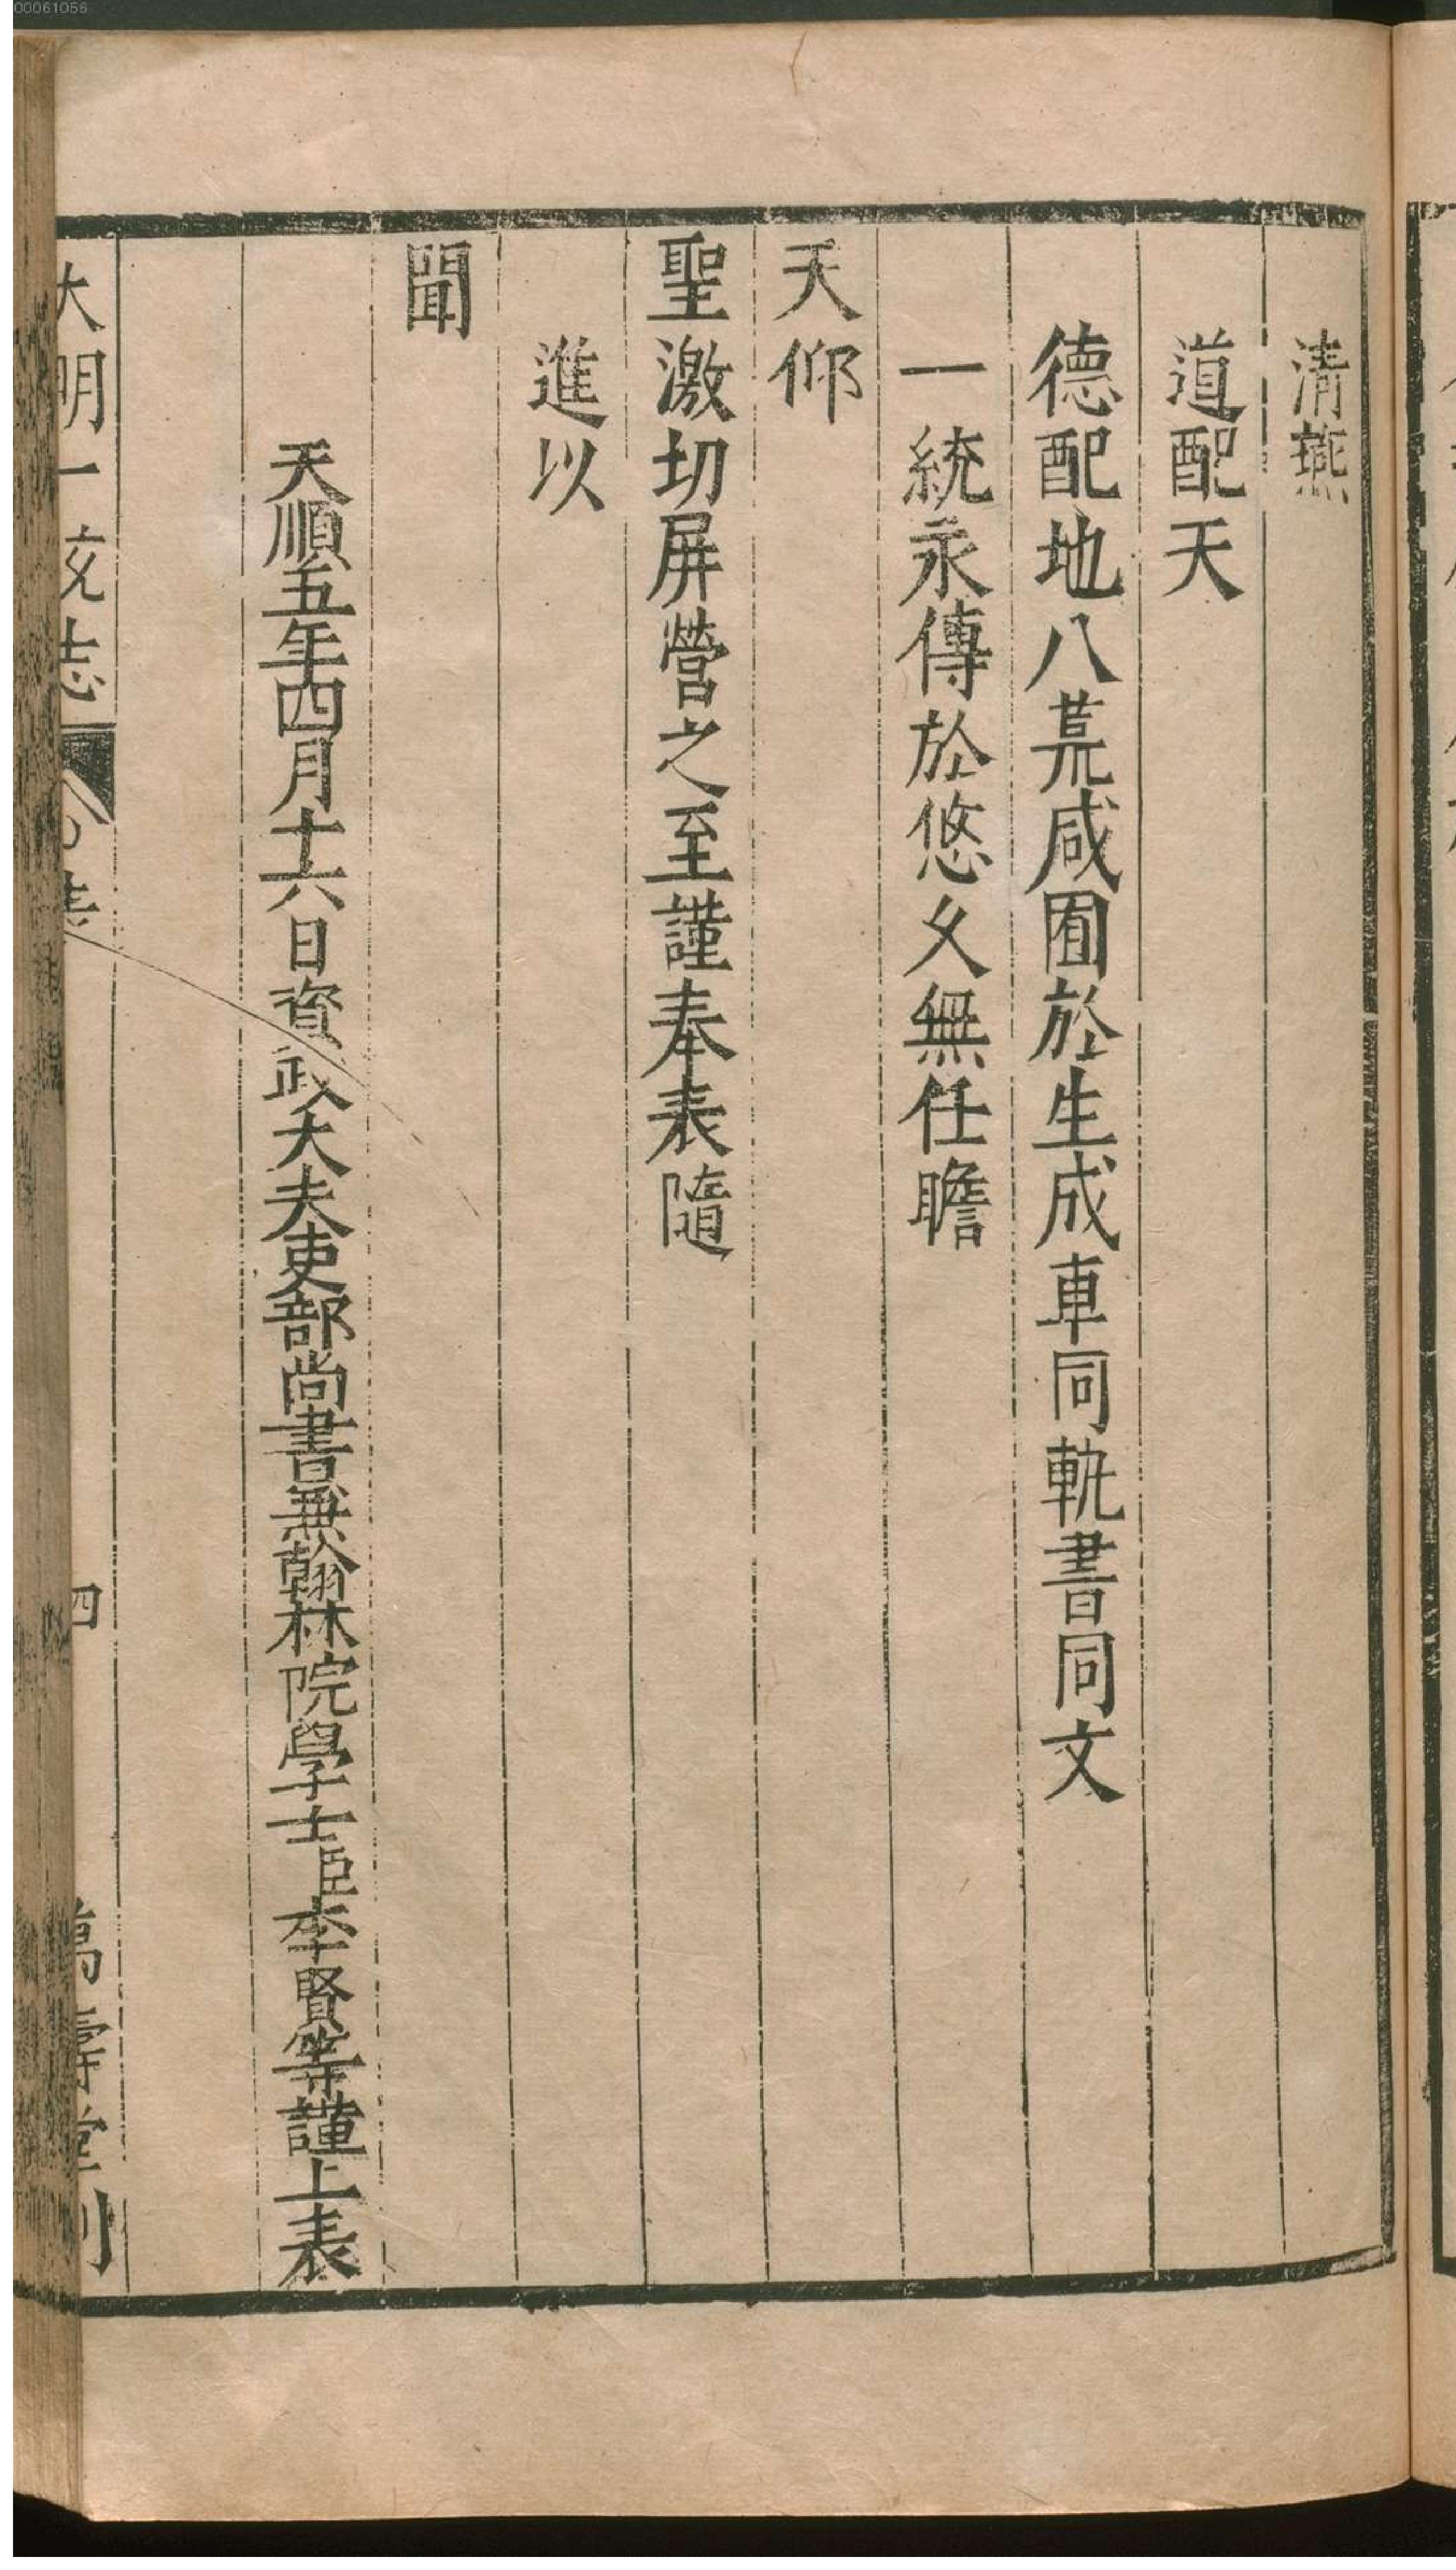 00061056
清燕
道配天
德配地八荒咸囿於生成車同軌書同文
一統永傳於悠久無任瞻
天仰
聖激切屏營之至謹奉表隨
進以
聞
天順五年四月十六日資政大夫吏部尚書兼翰林院學士臣李賢等謹上表
大明一統志
表
四
萬壽堂刊